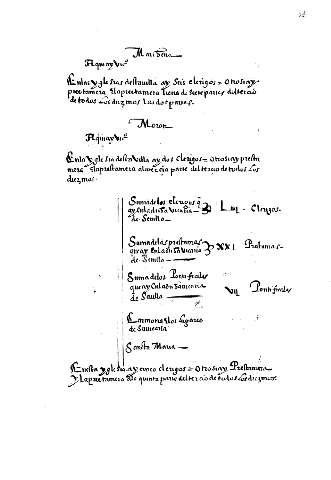 Marchena
Aqui ay Vi.º
En las yglesias desta villa ay seis clerigos = otrosi ay
prestamera. El prestamero lieva de siete partes del tercio
de todos los diezmos las dos partes.
Moron
Aqui ay Vi.º
En la yglesia desta Villa ay dos clerigos = otrosi ay presta
mera. El prestamero a parte del tercio de todos los
diezmos.
Suma de los clerigos q
ay en la dicha Vicaria
de Sevilla
L Clerigos.
Suma de las prestameras
que ay en la dicha Vicaria
de Sevilla
XXI Prestameras
Suma de los Pontificales
que ay en la dicha Vicaria
de Sevilla
VII Pontificales
los lugares
de Sancta Maria
Sancta Maria
En esta yglesia ay cinco clerigos = otrosi ay Prestamera
Y la prestamera de quinta parte del tercio de todos los diezmos